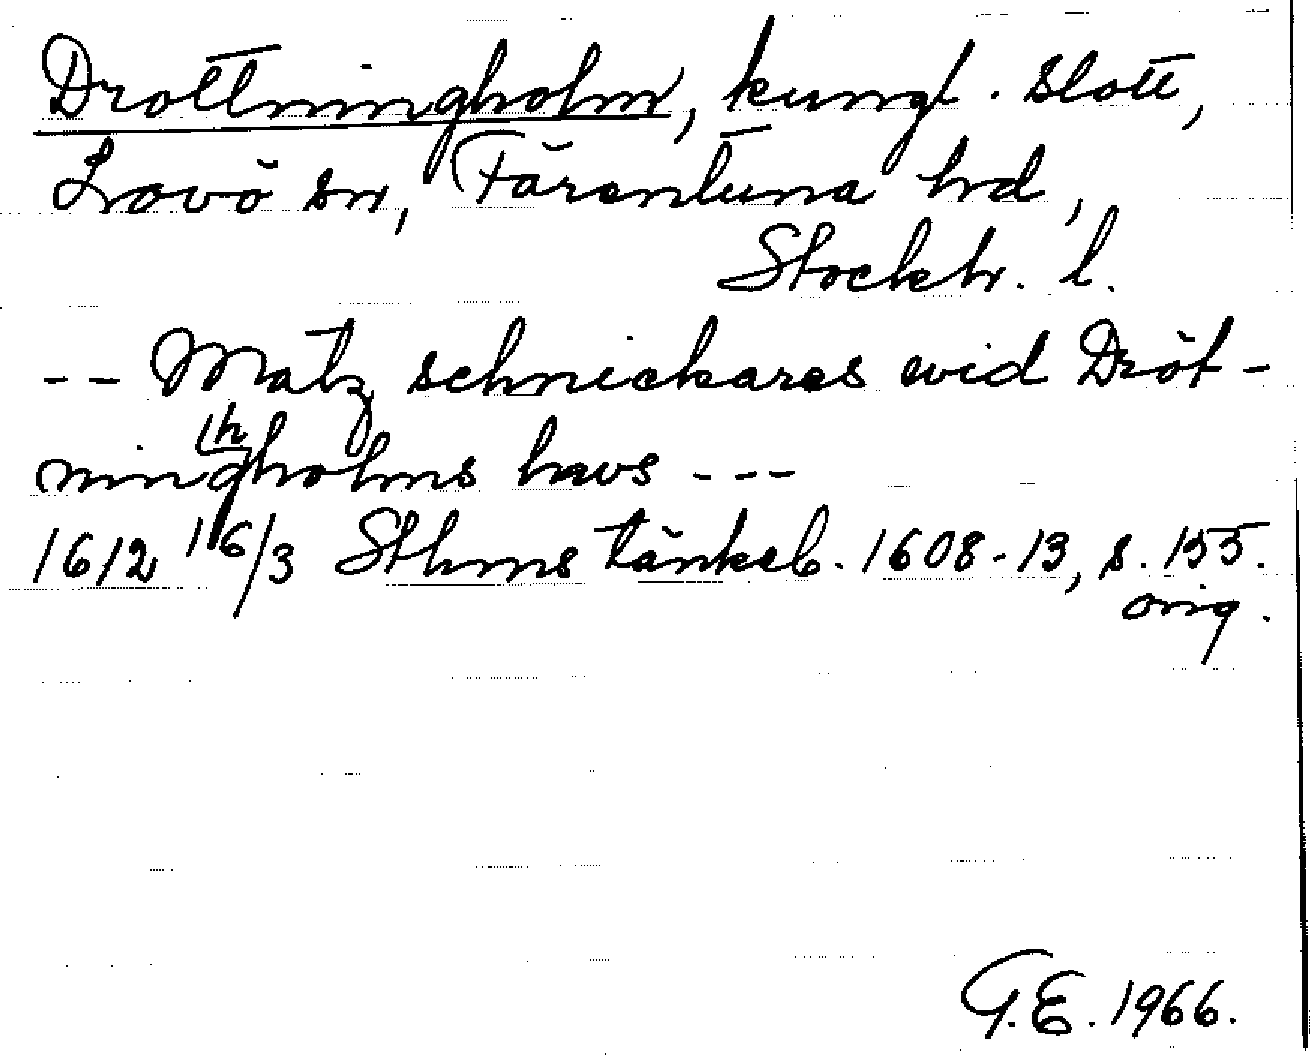 Drottningholm, kungl. slott,
Lovö sn, Färentuna hrd,
Stockh. l.
-- Matz schnickares wid Dröt-
ningholms hws ---
th
1612 16/3 Sthms tänkeb. 1608-13, s. 155.
orig.
G.E. 1966.